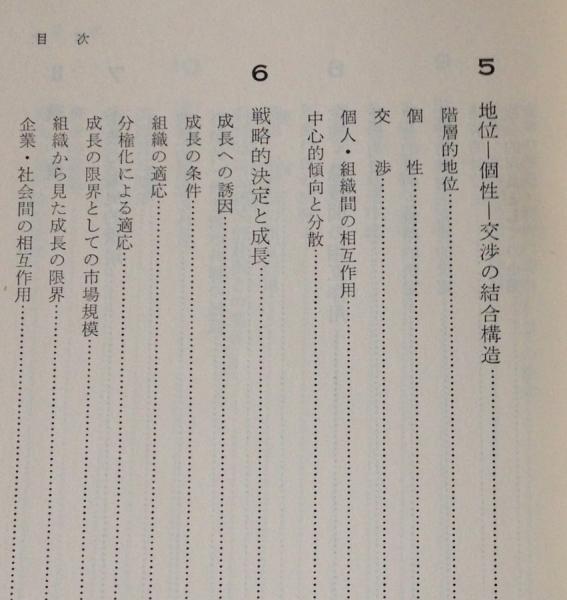 目次
5 地位―個性―交渉の結合構造
階層的地位
個性
交渉
個人・組織間の相互作用
中心的傾向と分散
6 戦略的決定と成長
成長への誘因
成長の条件
組織の適応
分権化による適応
成長の限界としての市場規模
組織から見た成長の限界
企業・社会間の相互作用